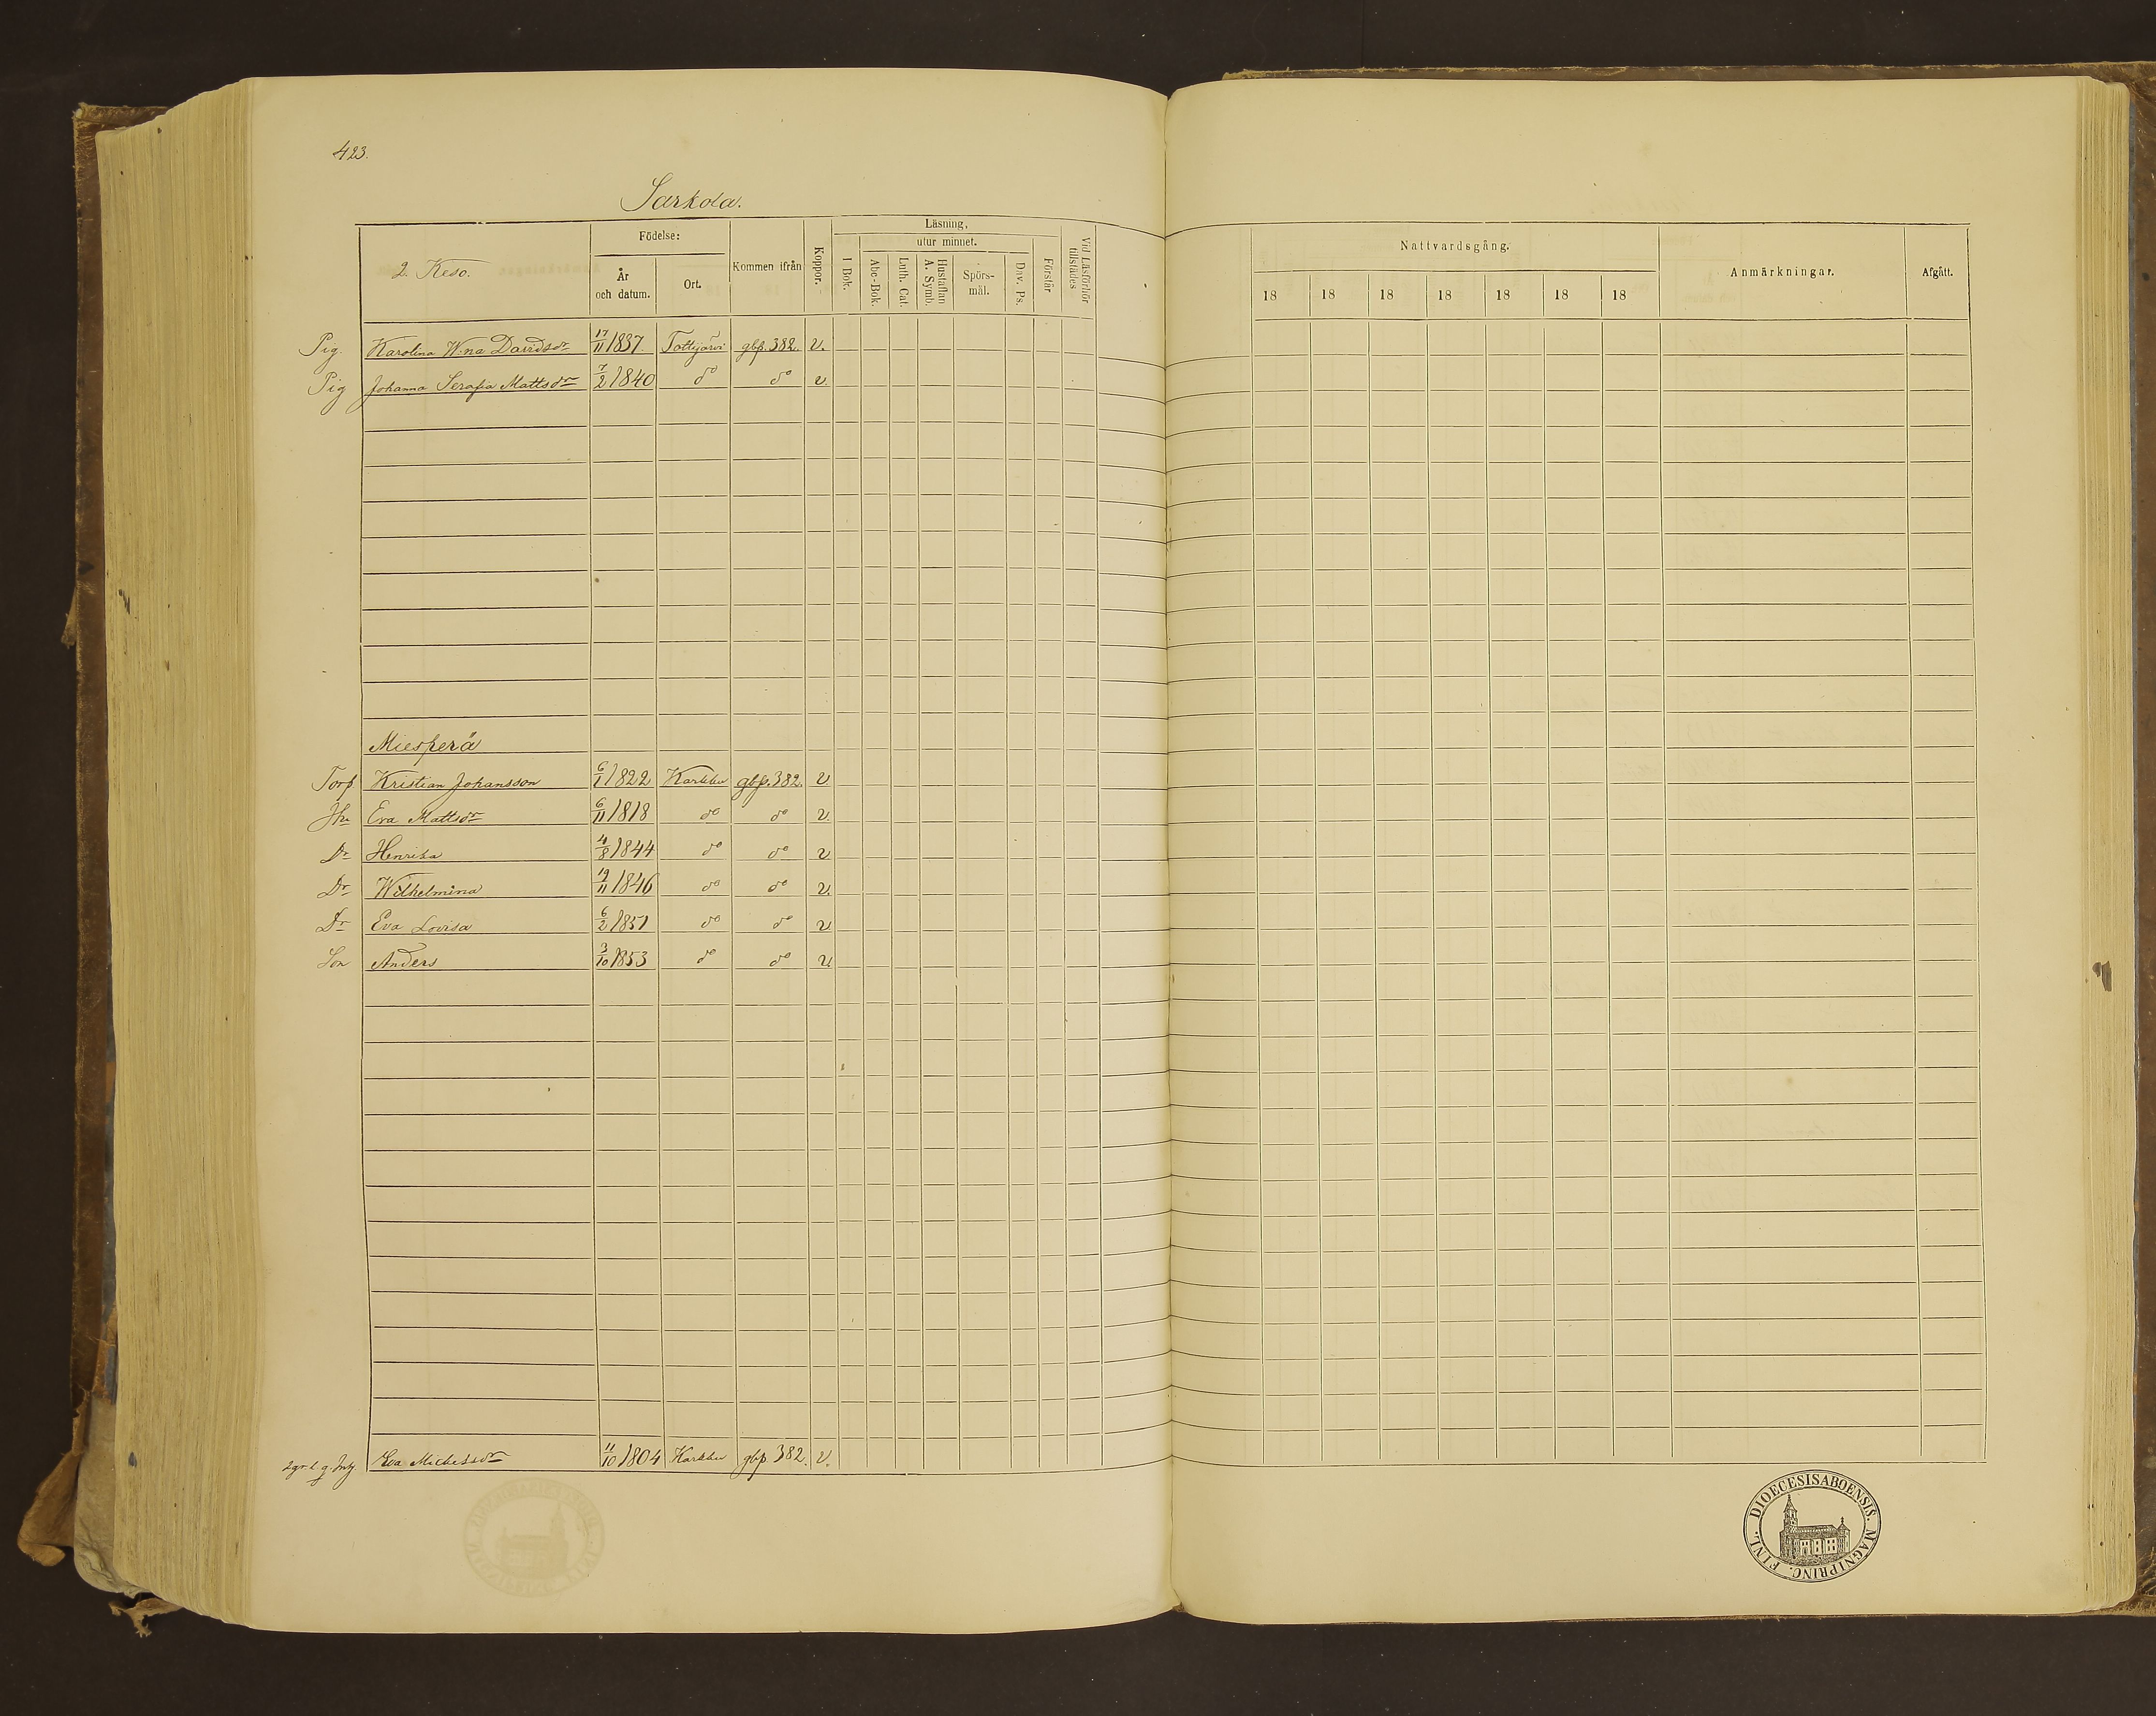 423.
Sarkola.
2. Keso.
Födelse:
År och datum.
Ort.
Kommen ifrån
Koppor.
Läsning,
I Bok.
utur minnet.
Abc-Bok.
Luth. Cat.
Hustaflan A. Symb.
Spörs-mål.
Dav. Ps.
Förstår
Vid Läsförhör tillstädes
Nattvardsgång.
18 18 18 18 18 18 18
Anmärkningar.
Afgått.
Pig. Karolina W:na Davidsdr 17/11 1837. Tottijärvi gbp. 382. v.
Pig Johanna Serafia Mattsdr 7/2 1840 do do v.
Miesperä
Torp Kristian Johansson 6/1 1822 Karkku gbp. 382. v
Hu Eva Mattsdr 6/11 1818 do do v.
Dr Henrika 4/8 1844 do do v
Dr Wilhelmina 19/11 1846 do do v.
Dr Eva Lovisa 6/2 1851 do do v
Son Anders 3/10 1853 do do v
Eva Michelsdr 11/10 1804 Karkku gbp. 382. v.
DIOECESISABOENSIS. MAGNIPRINC. FINL.